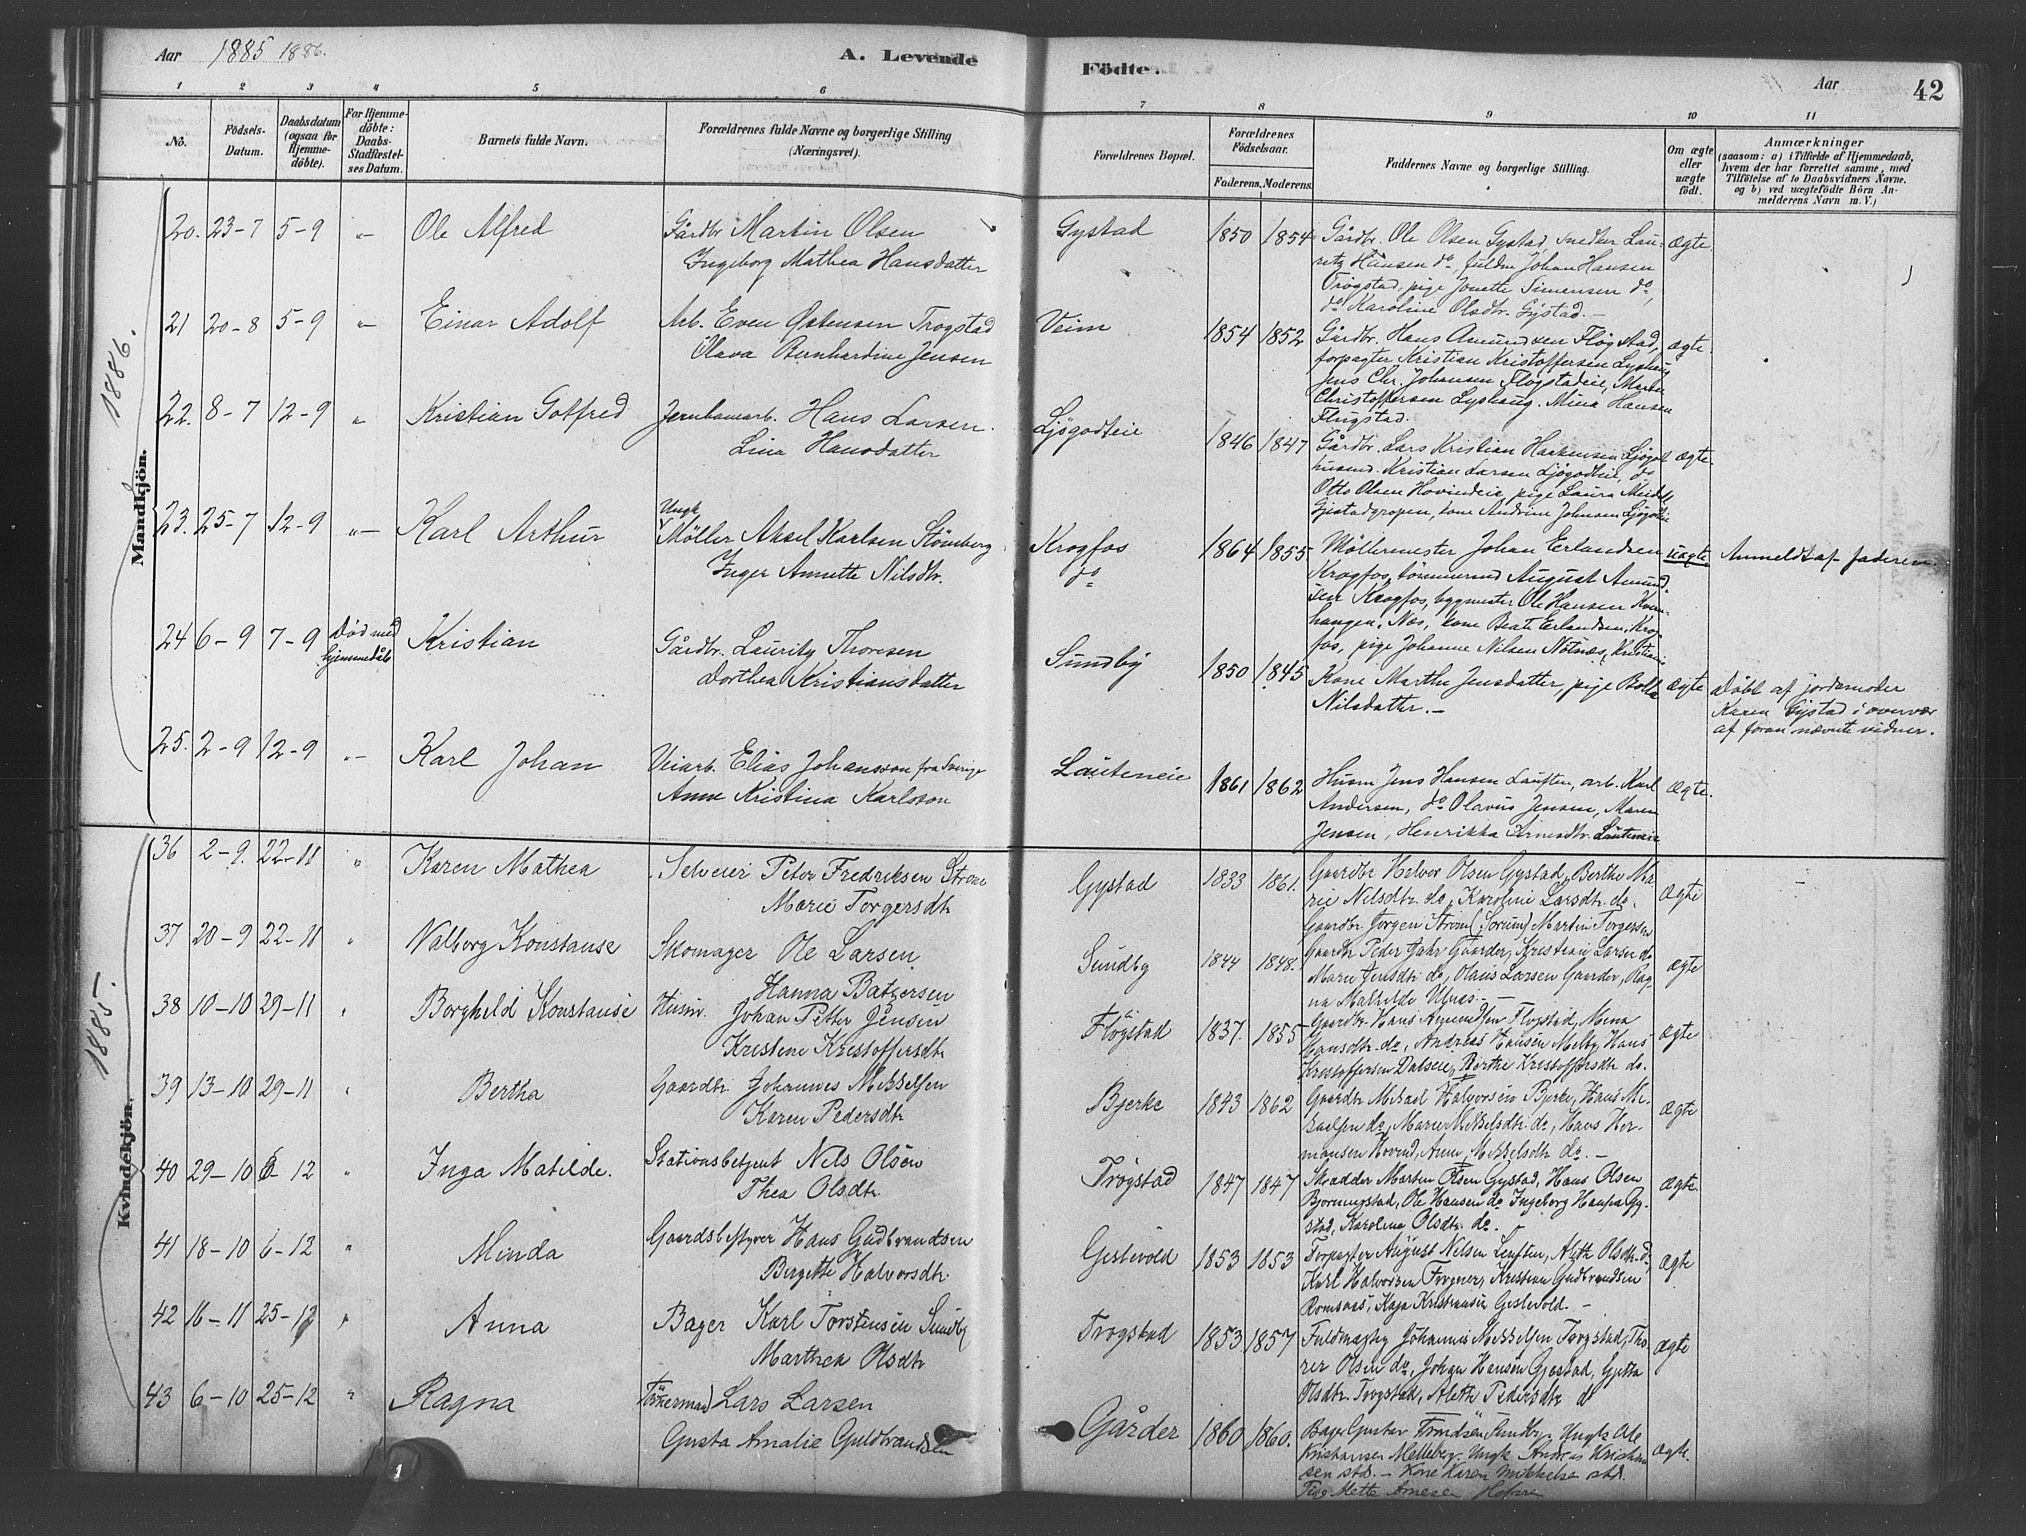 Aar 1885 1886.
A. Levende
Födte.
Aar
42
1 2 3 4 5 6 7 8 9 10 11
No.
Födsels-
Datum.
Daabsdatum
(ogsaa for
Hjemme-
döbte).
For Hjemme-
döbte:
Daabs-
Stadfæstel-
ses Datum.
Barnets fulde Navn.
Forældrenes fulde Navne og borgerlige Stilling
(Næringsvei).
Forældrenes Bopæl.
Forældrenes
Födselsaar.
Faderens. Moderens.
Faddernes Navne og borgerlige Stilling.
Om ægte
eller
uægte
födt.
Anmærkninger
(saasom: a) i Tilfælde af Hjemmedaab,
hvem der har forrettet samme, med
Tilföielse af to Daabsvidners Navne,
og b) ved uægtefödte Börn An-
melderens Navn m. V.)
1886.
Mandkjön.
20. 23-7 5-9 „- Ole Alfred
Gårdbr. Martin Olsen
Ingeborg Mathea Hansdatter
Gystad 1850 1854
Gårdbr. Ole Olsen Gystad, snedker Lau-
ritz Hansen do, Johan Hansen
Trogstad, pige Jonette Simensen do,
do Karoline Olsdtr. Gystad. -
ægte.
21 20-8 5-9 „- Einar Adolf
Arb. Even Trogstad
Olava Bernhardine Jensen
Veim 1854 1852
Gårdbr. Hans Amundsen Flogstad,
forpagter Kristian Kristoffersen Lyshaug
Jens Chr. Johansen Flogstadeie, Martin
Christoffersen Lyshaug. Mina Hansen
Flugstad.
ægte.
22. 8-7 12-9 „ Kristian Gotfred
Jernbanearb. Hans Larsen.
Lina Hansdatter
Ljøgodteie 1846 1847
Gårdbr. Lars Kristian Haakensen Ljøgot
husmd. Kristian Larsen Ljøgodteie, do
Otto Olsen Hovindeie, pige Laura
Gjestadgropen, kone Andrine Johnsen Ljøgotteie
ægte.
23. 25-7 12-9 „- Karl Arthur
Ungk
Møller Aksel Karlsen Stömberg
Inger Annette Nilsdtr.
Krogfos
do
1864 1855
Møllermester Johan Erlandsen
Krogfos, tömmermd August Amund-
sen Krogfos, bygmester Ole Hansen Kvern-
haugen, Næs, kone Beate Erlandsen, Krog-
fos, pige Johanne Nilsen Kristiania
uægte
Anmeldt af faderen.
24 6-9 7-9 Död med
hjemmedåb
Kristian
Gårdbr. Lauritz Thoresen
Dorthea Kristiansdatter
Sundby 1850 1845
Kone Marthe Jensdatter, pige
Nilsdatter. -
ægte
Döbt af jordemoder
Karen Gystad i overvær
af foran nævnte vidner.
25. 2-9 12-9 „- Karl Johan
Veiarb. Elias Johansson fra Sverige
Anna Kristina Karlsson
Lauteneie 1861 1862
Husm Jens Hansen Lauften, arb. Karl
Andersen, do Olavus Jensen, Maren
Jensen, Henrikka Arnesdtr. Lauteneie
ægte.
1885.
Kvindekjön.
36 2-9. 22-11 „ Karen Mathea
Selveier Peter Fredriksen Strøm
Marie Torgersdtr
Gystad 1833 1861.
Gaardbr Halvor Olsen Gystad, Berthe Ma-
rie Nilsdtr do, Karoline Larsdtr. do.
Gaardbr Jörgen Ström (Sörum) Martin Torgersen
ægte
37 20-9 22-11 „ Valborg Konstanse
Skomager Ole Larsen.
Hanna Batzersen
Sundby 1844 1848.
Gaardbr Peder Gaarder, Kristian Larsen do
Marie Jensdtr do, Olaus Larsen Gaarder, Rag-
na Mathilde Ulnæs. -
ægte
38 10-10 29-11 „ Borghild Konstanse
Husm. Johan Petter Jensen
Kristine Kristoffersdtr
Flogstad 1837. 1855
Gaardbr. Hans Amundsen Flogstad, Mina
Hansdtr. do, Andreas Hansen Melby, Hans
Kristoffersen Dalseie, Berthe Kristoffersdtr do.
ægte
39 13-10 29-11 „ Bertha
Gaardbr. Johannes Mikkelsen
Karen Pedersdtr
Bjerke 1843 1862
Gaardbr Mikael Halvorsen Bjerke, Hans Mi-
kaelsen do, Marie Mikkelsdtr. do, Hans Her-
mansen Hovind, Anne Mikkelsdtr do. -
ægte
40 29-10 6-12 „ Inga Matilde.
Stationsbetjent Nils Olsen
Thea Olsdtr.
Trøgstad 1847 1847
Skrædder Morten Olsen Gystad, Hans Olsen
Bjorningstad, Ole Hansen do Ingeborg Gy-
stad, Karoline Olsdtr. do.
ægte.
41 18-10 6-12 „ Minda
Gaardsbestyrer Hans Gudbrandsen
Bergitte Halvorsdtr.
Gestevold 1853 1853
Forpagter August Nilsen Leuften, Aleth Olsdtr. do,
Karl Halvorsen Kristian Gudbrandsen
Romsaas, Kaja Kristiansen Gestevold. -
ægte
42 16-11 25-12 „ Anna
Bager Karl Torstensen Sundby
Marthea Olsdtr
Trogstad 1853 1857
Fuldmægtig Johannes Mikkelsen Trogstad, Tho-
rer Olsen do, Johan Hansen Gjestad, Gjetta
Olsdtr. Trogstad, Aleth Pedersdtr do
ægte
43 6-10 25-12 „ Ragna
Tömmermand Lars Larsen
Gusta Amalie Guldbrandsen
Gårder 1860 1860.
Bager Gustav Sundby. Ungk Ole
Kristiansen Melleberg, Ungk Andreas Kristian-
sen std. - Kone Karen Mikkelsen std.
Pige Mette Arnesen
ægte.
1